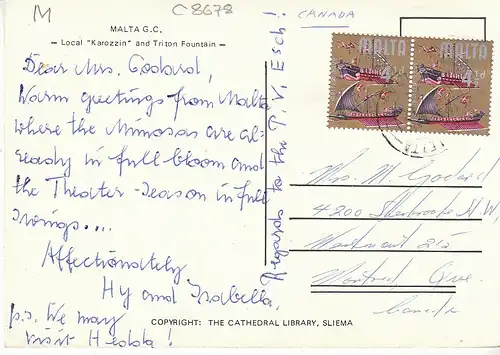 M
C8678
CANADA
MALTA G.C.
— Local "Karozzin" and Triton Fountain —
Dear Mrs. Godard,
Warm greetings from Malta
where the Mimosas are al-
ready in full bloom and
the Theater-Season in full
swings....
Affectionately
Hy and Isabella,
p.s. We may
visit Hedda!
Regards to the T.V. Esch!
MALTA MALTA
4½d 4½d
Mrs. M. Godard
4200 Sherbrooke St. W.
Westmount 215
Montreal Que.
Canada
COPYRIGHT: THE CATHEDRAL LIBRARY, SLIEMA